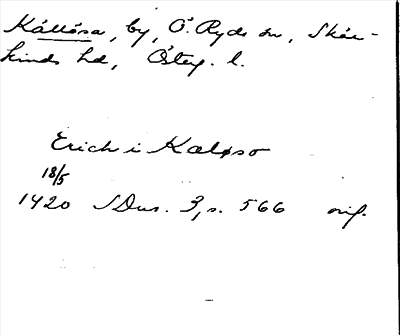 Källösa, by, Ö. Ryds sn, Skär-
kinds hd, Österg. l.
Erich i Kaløso
18/5
1420 SDns. 3, s. 566 orig.